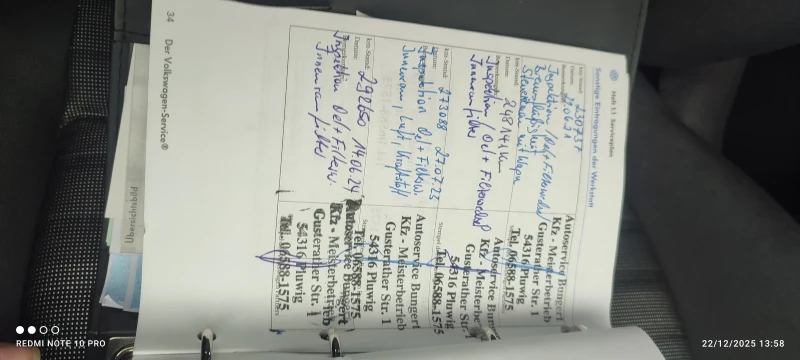 Heft 1.1 Serviceplan
Sonstige Eintragungen der Werkstatt
km-Stand: 230737
Datum:
Inspektion /Oel+Filterwechsel
Bremsflüssigkeit
Autoservice Bungert
Kfz - Meisterbetrieb
Gusterather Str. 1
54316 Pluwig
Tel. 06588-1575
km-Stand: 248144 km
Datum:
Inspektion / Oel + Filterwechsel
Innenraumfilter
Autoservice
Kfz - Meisterbe
Gusterath
54316 Pluwig
Tel. 06588-1575
km-Stand: 273088 27.07.23
Datum:
Inspektion Oel + Filterw.
Innenraum, Luft, Kraftstoff
Autoservice Bungert
Kfz - Meisterbetrieb
Gusterather Str. 1
54316 Pluwig
Tel. 06588-1575
km-Stand: 292650 14.06.24
Datum:
Inspektion Oel + Filterw.
Innenraumfilter
Autoservice Bungert
Kfz - Meisterbetrieb
Gusterather Str. 1
54316 Pluwig
Tel. 06588-1575
34 Der Volkswagen-Service®
Übersichtsbild
REDMI NOTE 10 PRO
22/12/2025 13:58